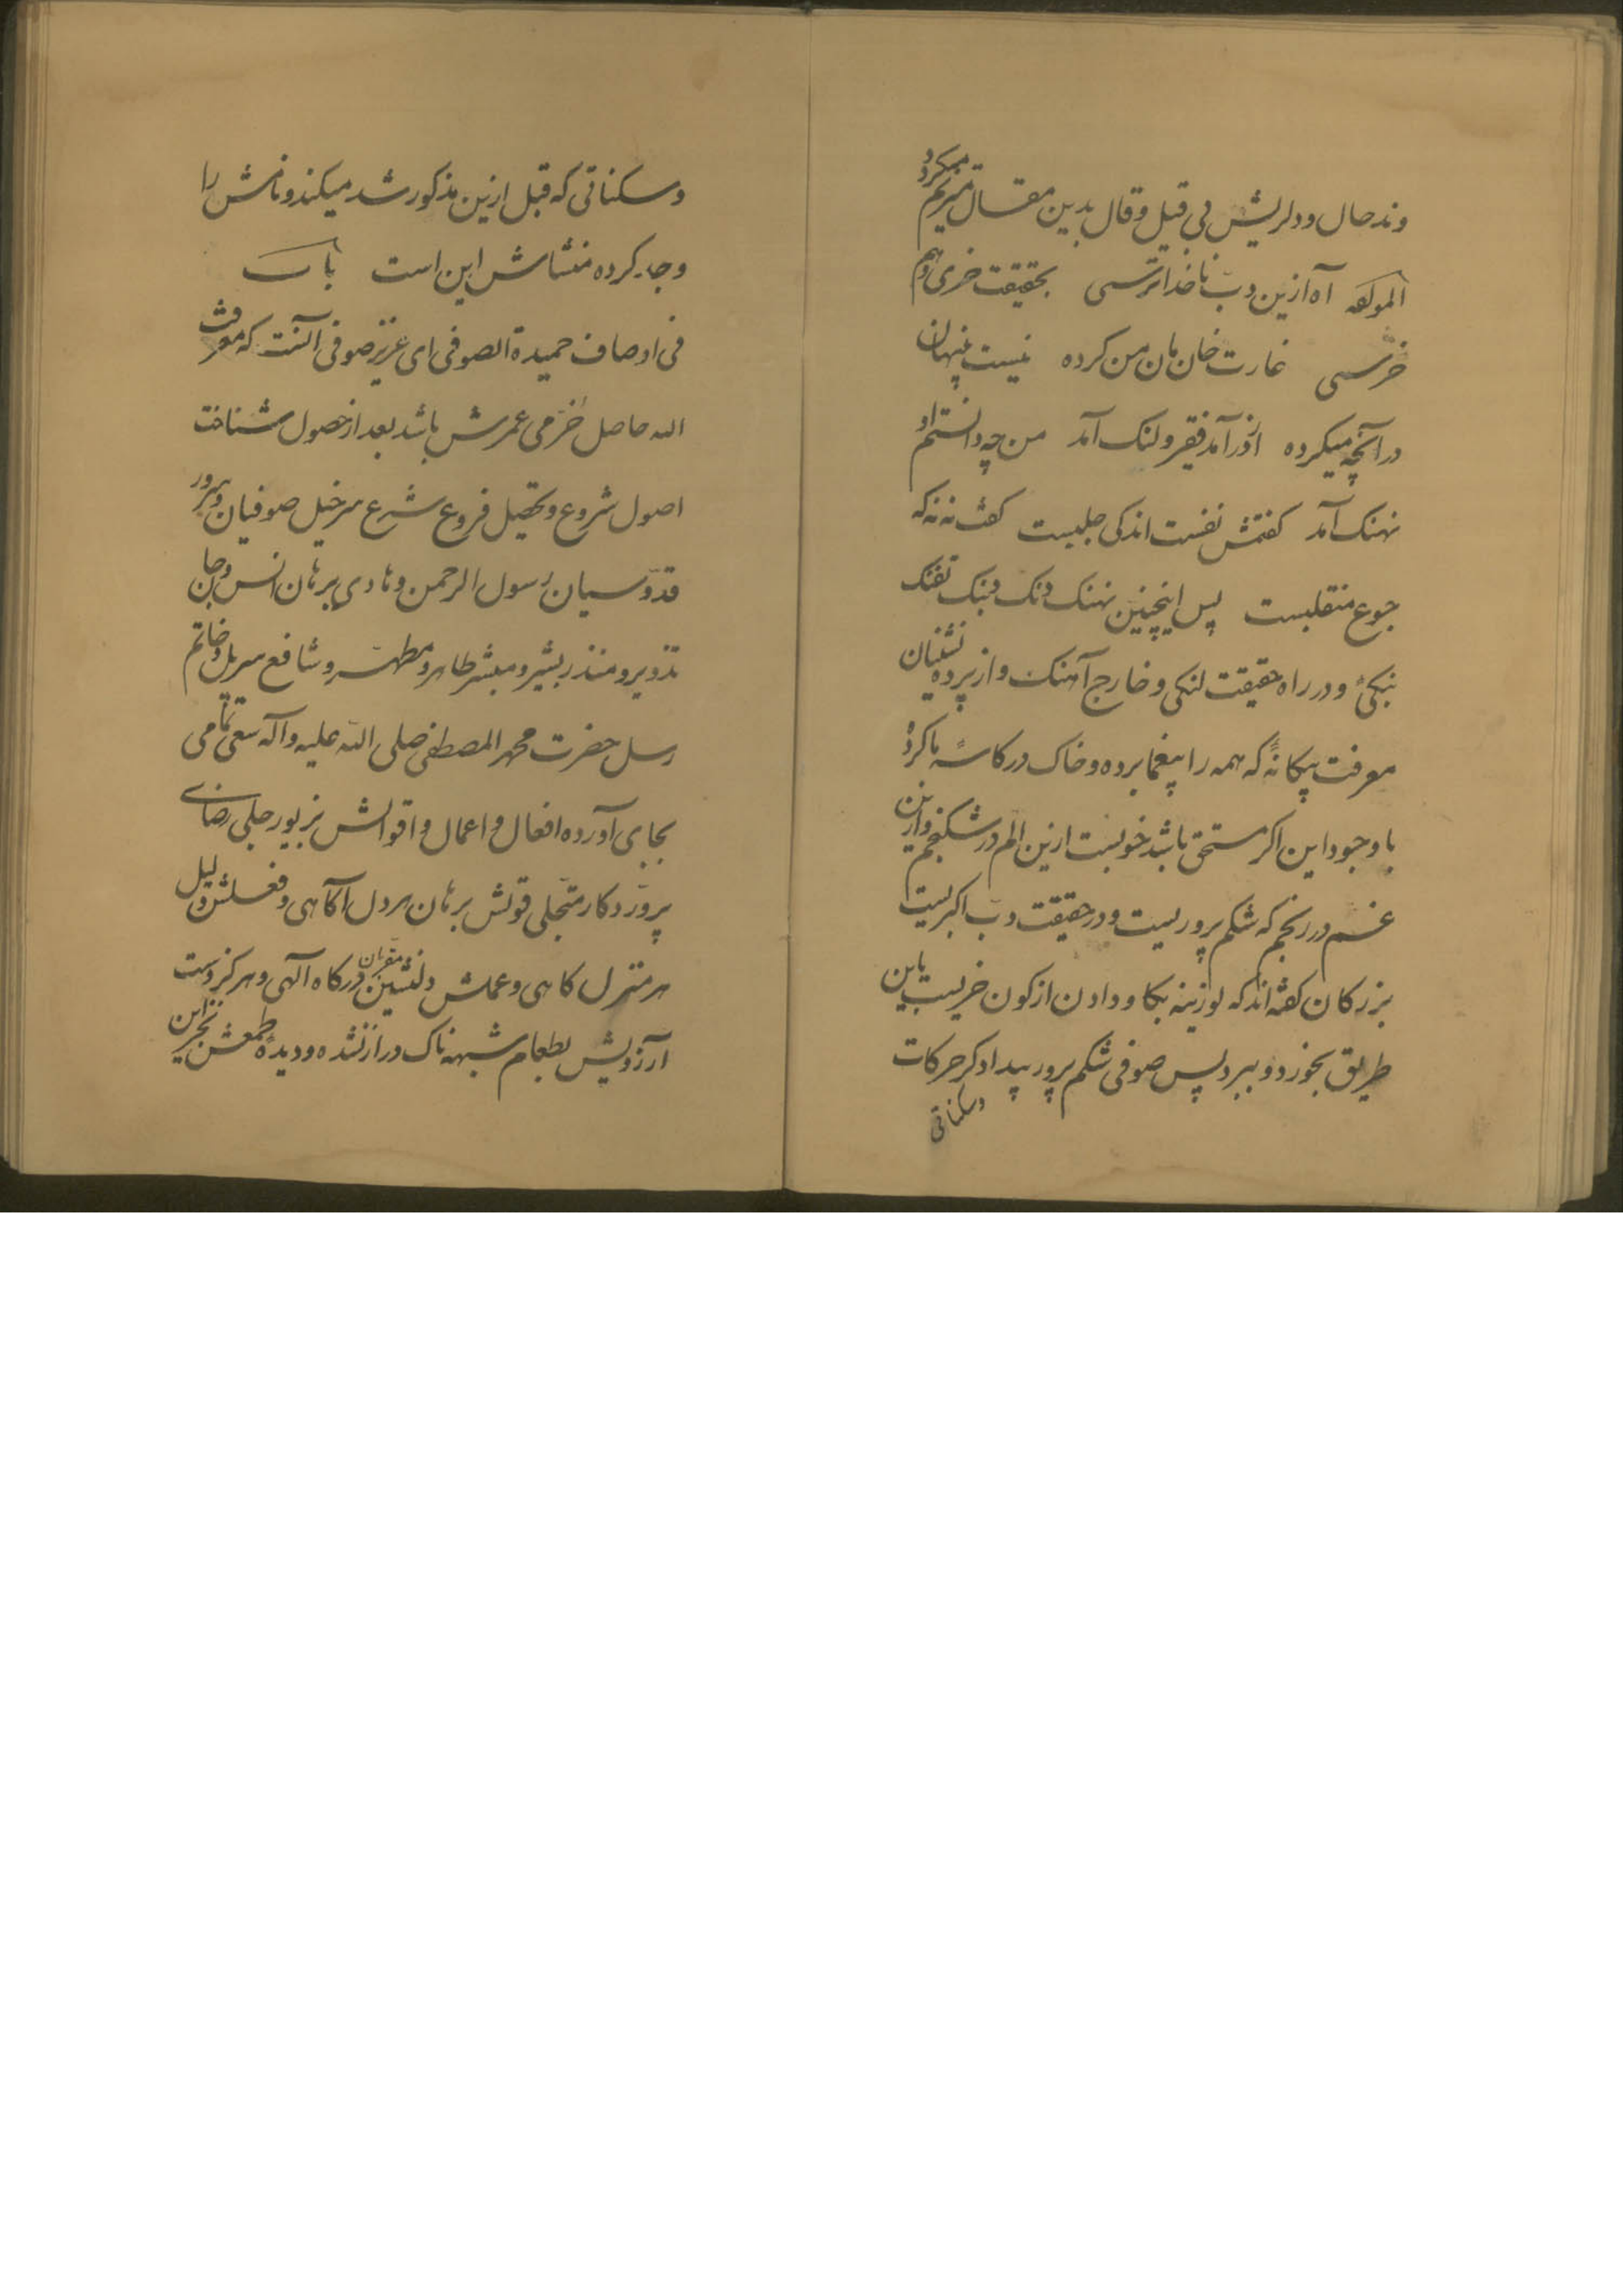 وند حال و دلریش بی قیل و قال بدین مقال مترنم میکردد
المولفه آه ازین دب ناخدا ترسی بحقیقت خری و هم
خرسی غارت خان مان من کرده نیست پنهان
در آنچه میکرده از در آمد فقیر و لنک آمد من چه دانستم او
نهنک آمد کفتمش نفست اندکی جلبست کفت نه نه که
جوع منقلبست پس اینچنین نهنک دنک دبنک تفنک
بنکئ و در راه حقیقت لنکی و خارج آهنک و از پرده نشینان
معرفت بیکانهٔ که همه را بیغما برده و خاک در کاسهٔ ما کرده
با وجود این اکر مستحق باشد خوبست ازین الم در شکنجم و ازین
غم در رنجم که شکم پروریست و در حقیقت دب اکبریست
بزرکان کفته اند که لوزینه بکاو دادن از کون خریست باین
طریق بخورد و ببرد پس صوفی شکم پرور بیدادکر حرکات
وسکناتی
وسکناتی که قبل ازین مذکور شد میکند و نامش را
وجد کرده منشاش این است باب
فی اوصاف حمیدة الصوفی ای عزیز صوفی آنست که معرفت
الله حاصل خرّمی عمرش باشد بعد از حصول شناخت
اصول شروع و تحصیل فروع شرع سرخیل صوفیان و سرور
قدّوسیان رسول الرحمن و هادی برهان انس و جان
نذیر و منذر بشیر و مبشر طاهر و مطهّر و شافع سربل و خاتم
رسل حضرت محمد المصطفی صلی الله علیه و آله سعی تمامی
بجای آورده افعال و اعمال و اقوالش بزیور حلی رضای
پرورد کار متجلی قولش برهان هر دل آکاهی و فعلش دلیل
هر منزل کاهی و عملش دلنشین مقربان درکاه آلهی و هرکز دست
آرزویش بطعام شبهه ناک دراز نشده و دیدهٔ طمعش بجز این